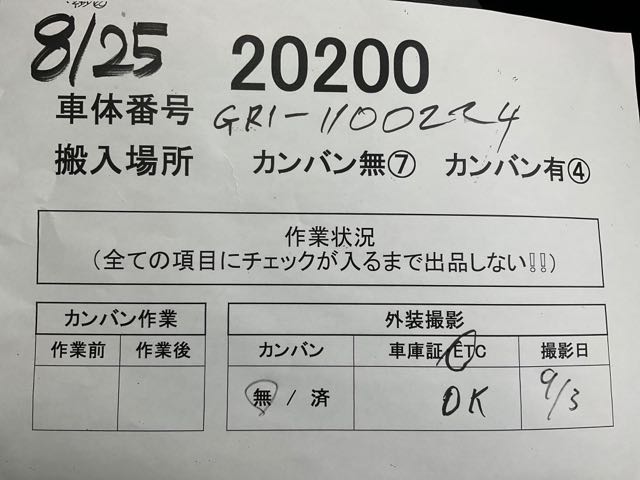 8/25 20200
車体番号 GR1-1100224
搬入場所 カンバン無⑦ カンバン有④
作業状況
(全ての項目にチェックが入るまで出品しない!!)
カンバン作業 外装撮影
作業前 作業後 カンバン 車庫証 ETC 撮影日
無 / 済 OK 9/3